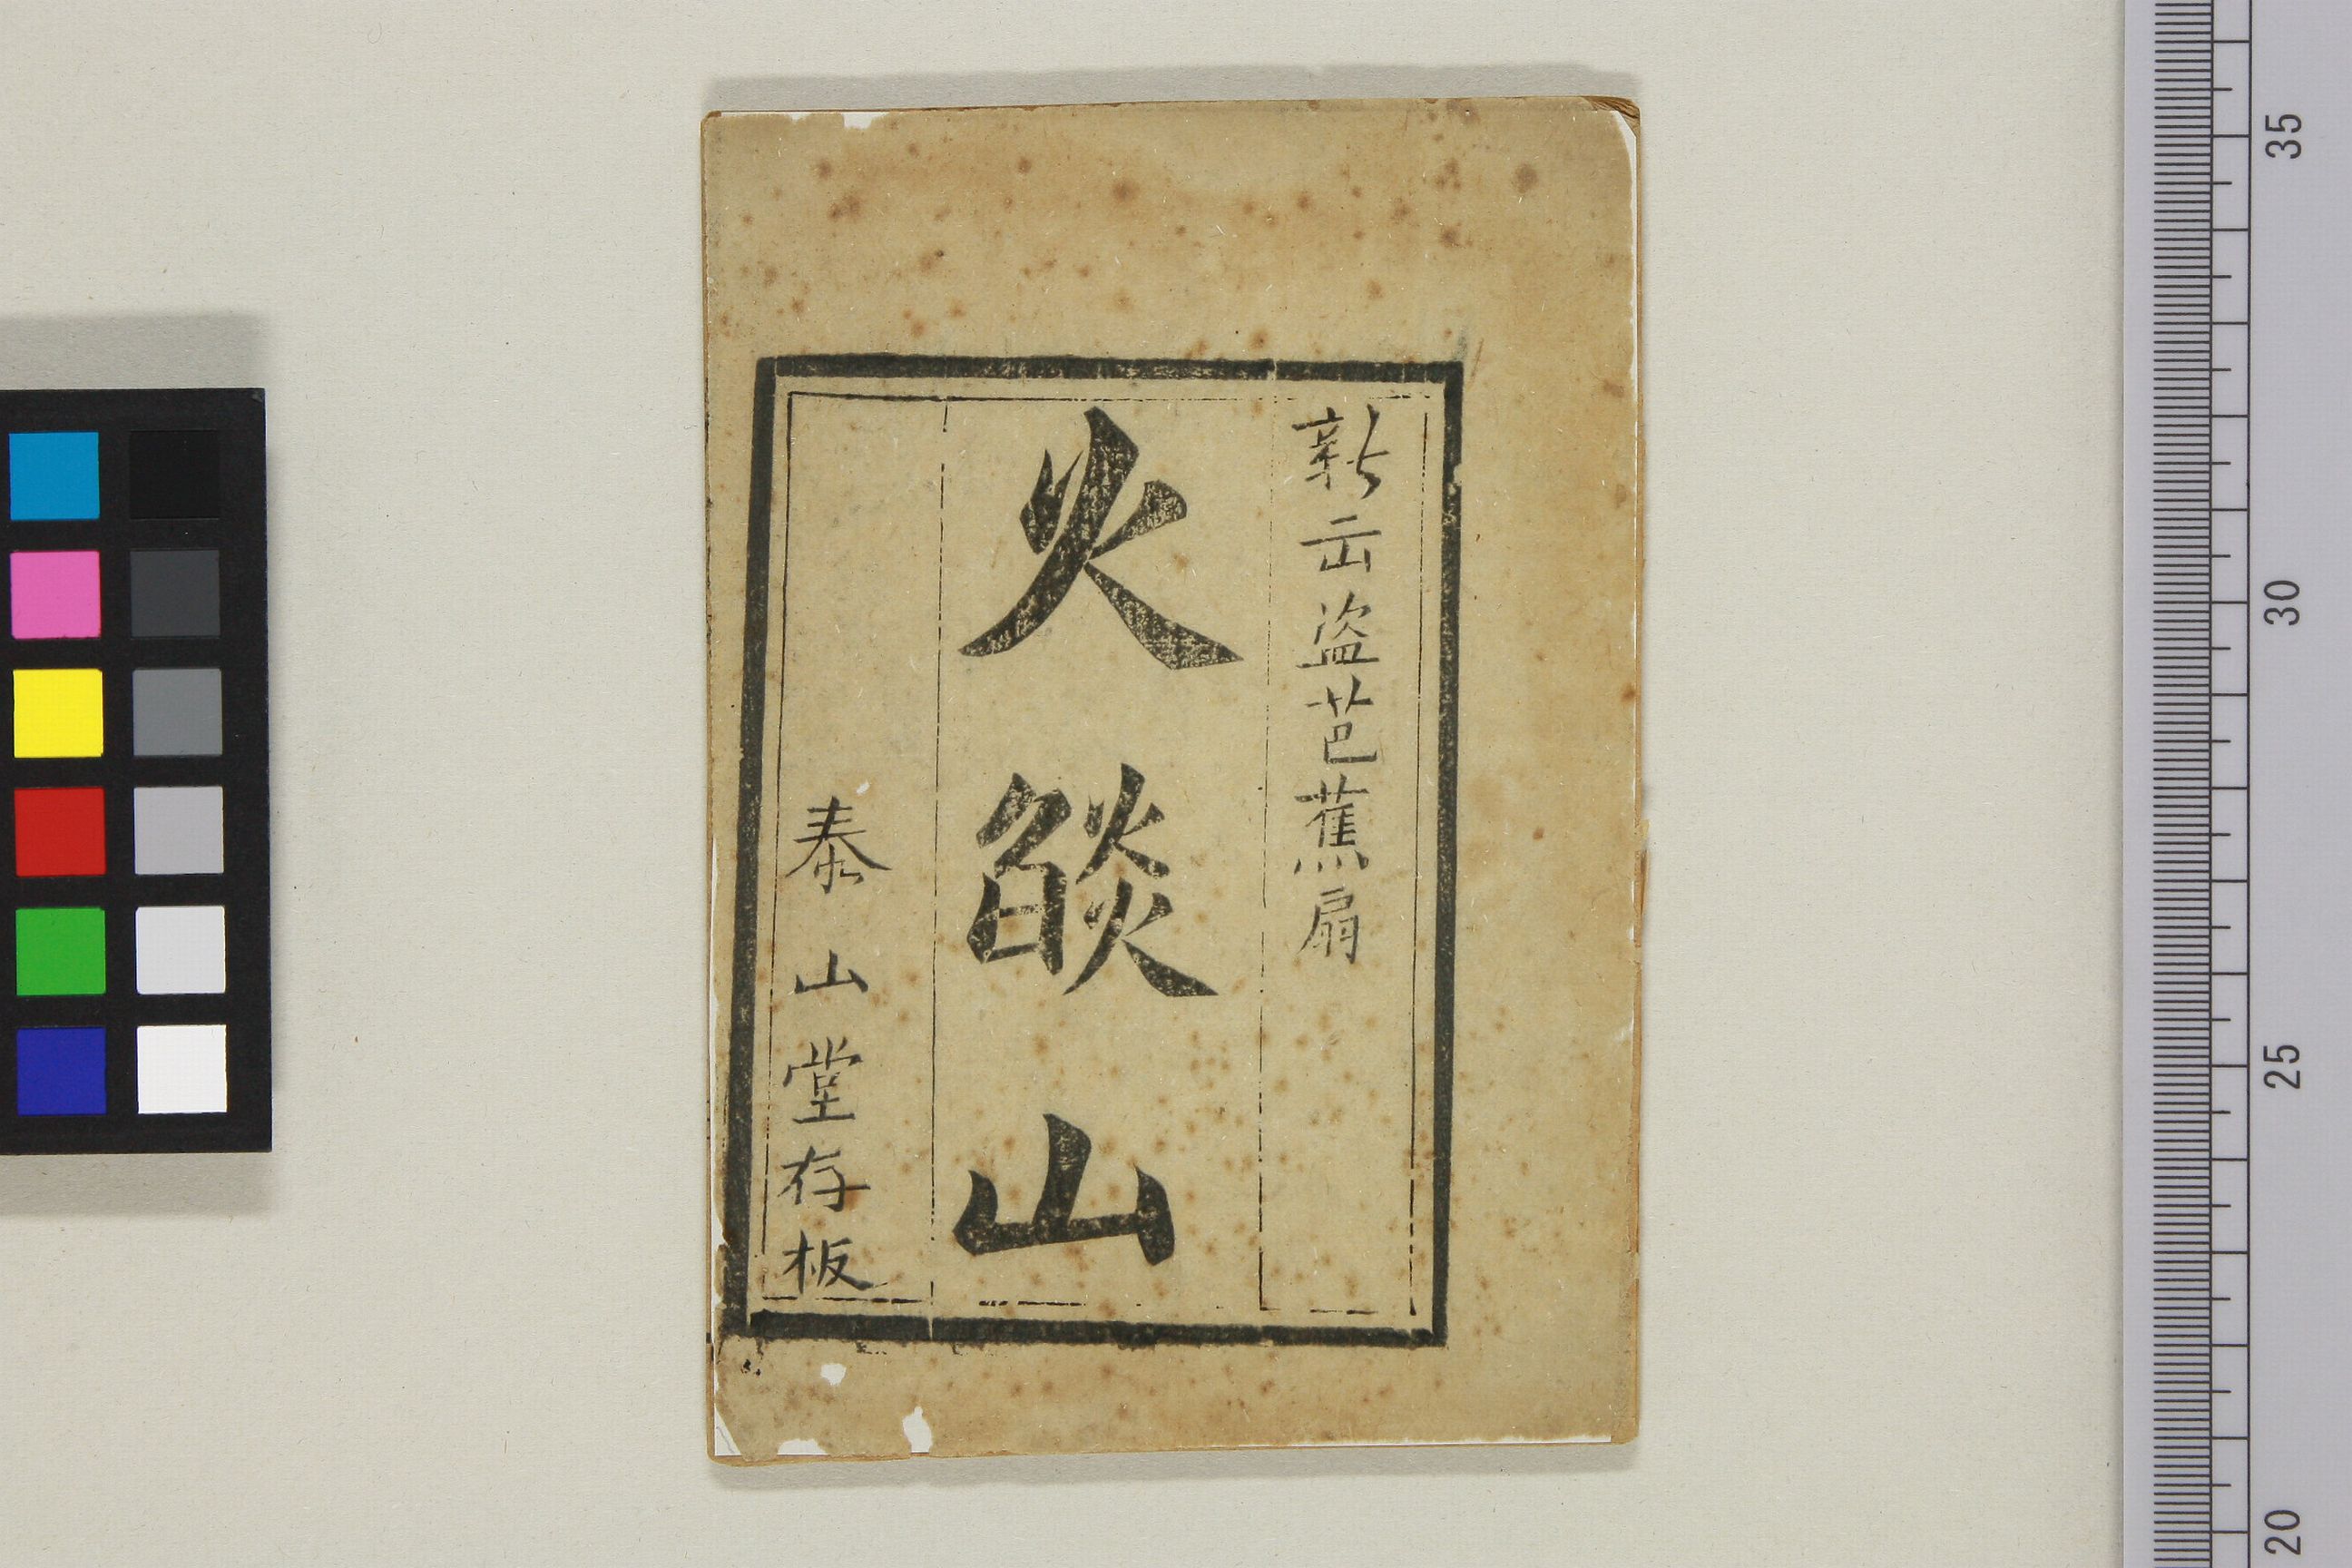 新盗芭蕉扇
火燄山
泰山堂存板
35
30
25
20